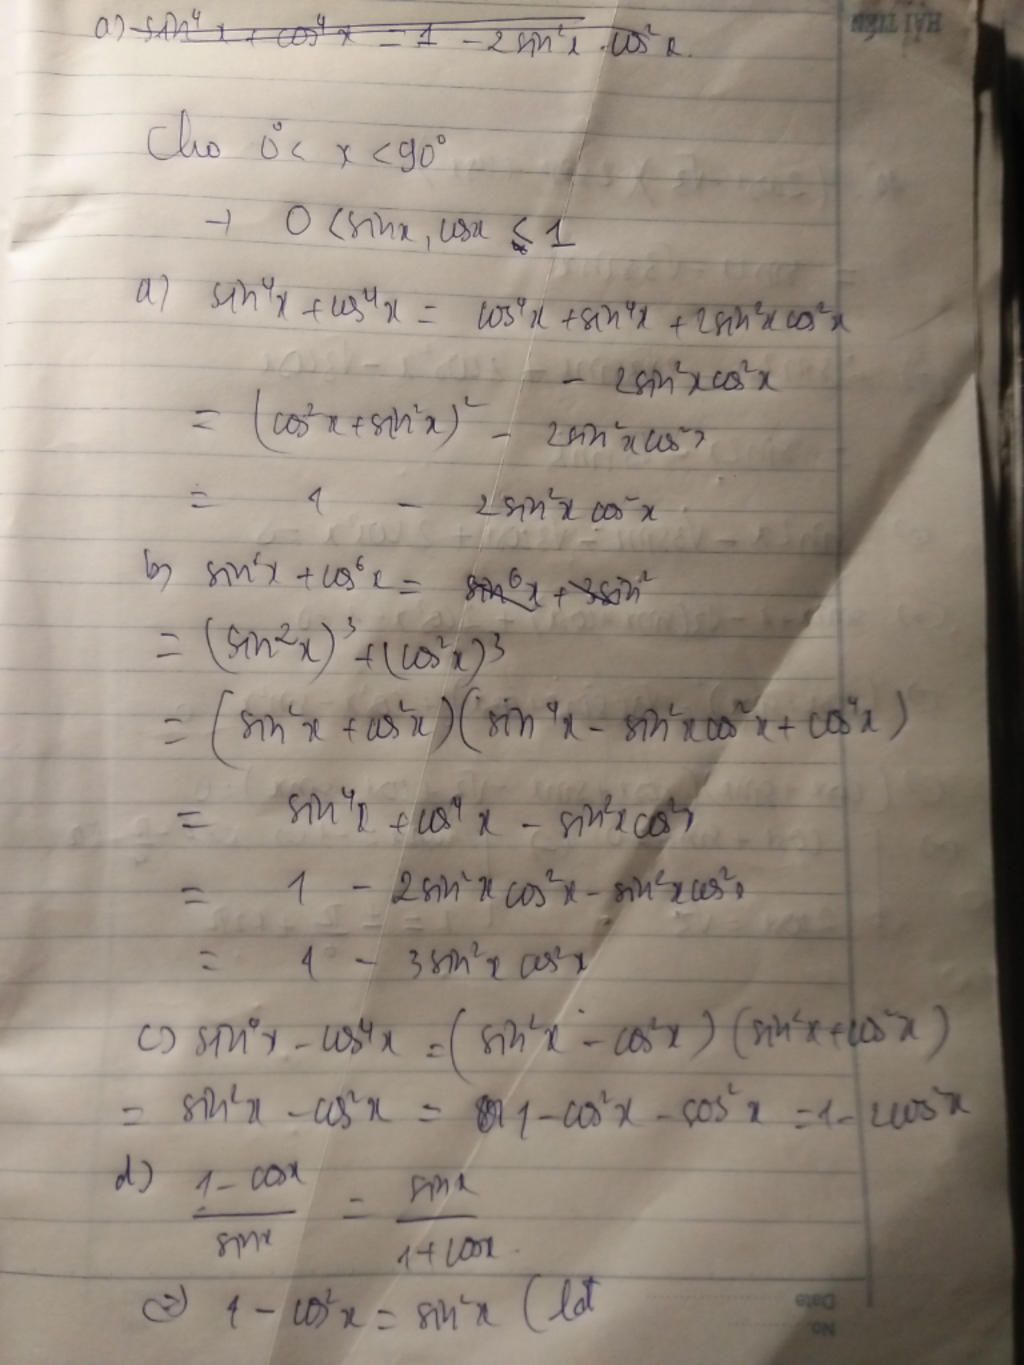 a) sin⁴x + cos⁴x = 1 - 2sin²x.cos²x.
HẢI TIẾN
Cho 0° < x < 90°
→ 0 < sinx, cosx ≤ 1
a) sin⁴x + cos⁴x = cos⁴x + sin⁴x + 2sin²xcos²x
- 2sin²xcos²x
= (cos²x + sin²x)² - 2sin²xcos²x
= 1 - 2sin²x cos²x
b) sin⁶x + cos⁶x = sin⁶x + 3sin²
= (sin²x)³ + (cos²x)³
= (sin²x + cos²x)(sin⁴x - sin²xcos²x + cos⁴x)
= sin⁴x + cos⁴x - sin²xcos²x
= 1 - 2sin²x cos²x - sin²xcos²x
= 1 - 3sin²x cos²x
c) sin⁴x - cos⁴x = (sin²x - cos²x)(sin²x + cos²x)
= sin²x - cos²x = 1 - cos²x - cos²x = 1 - 2cos²x
d) (1 - cosx)/sinx = sinx/(1 + cosx).
⇔ 1 - cos²x = sin²x (lđt
Date
No.